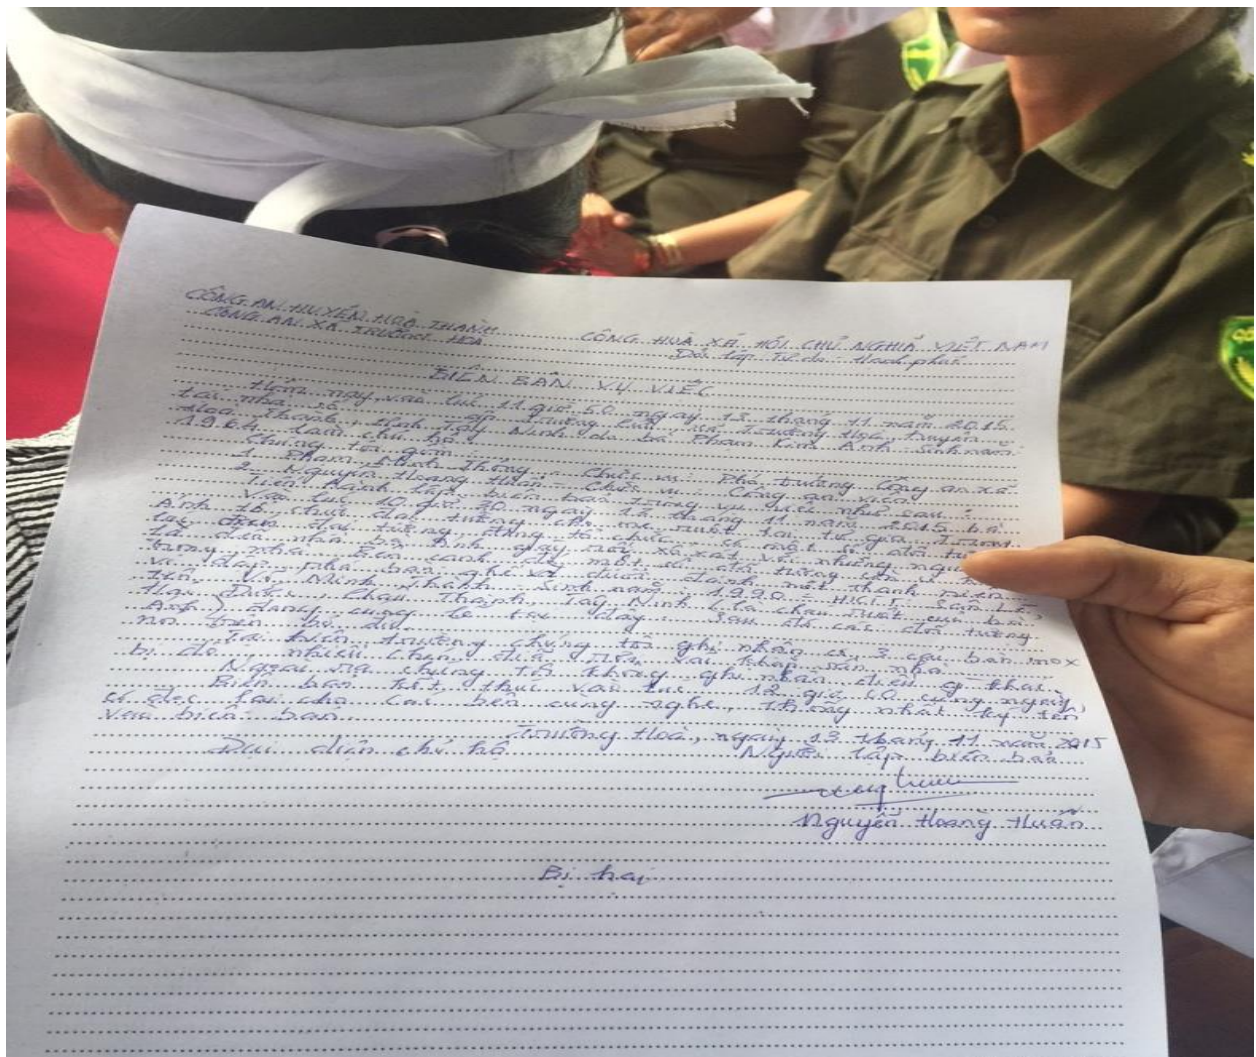 CÔNG AN HUYỆN HOÀ THÀNH
CÔNG AN XÃ TRƯỜNG HOÀ
CỘNG HOÀ XÃ HỘI CHỦ NGHĨA VIỆT NAM
Độc lập Tự do Hạnh phúc
BIÊN BẢN VỤ VIỆC
Hôm nay vào lúc 11 giờ 50 ngày 13 tháng 11 năm 2015
tại nhà số ấp Trường xã Trường Hoà, huyện
Hoà Thành, tỉnh Tây Ninh do bà Phạm Kim Anh sinh năm
1964 làm chủ hộ.
Chúng tôi gồm:
1. Phạm Minh Thông - Chức vụ: Phó trưởng công an xã
2. Nguyễn Hoàng Huấn - Chức vụ: Công an viên
Tiến hành lập biên bản vụ việc như sau:
Vào lúc 10 giờ 30 ngày 13 tháng 11 năm 2015 bà
Anh tổ chức tang cho mẹ ruột
tổ chức có một số đối
đến nhà bà Anh gây xô xát với những
trong nhà. Bên cạnh đó một số đối tượng còn
đập phá bàn ghế và đánh một thanh niên
tên Võ Minh sinh năm: 1990 - HKTT:
Châu Thành, Tây Ninh (là cháu ruột của bà
Anh) đang cúng lễ tại đây. Sau đó các đối tượng
nơi trên bỏ đi.
Tại hiện trường chúng tôi ghi nhận có 3 cái bàn
bị nhiều chén dĩa nằm rải khắp sân nhà.
Ngoài ra chúng tôi không ghi nhận điều gì khác.
Biên bản kết thúc vào lúc 12 giờ 50 cùng ngày,
có đọc lại cho các bên cùng nghe, thống nhất ký tên
vào biên bản.
Trường Hoà, ngày 13 tháng 11 năm 2015
Đại diện chủ hộ
Người lập biên bản
Nguyễn Hoàng Huấn
Bị hại